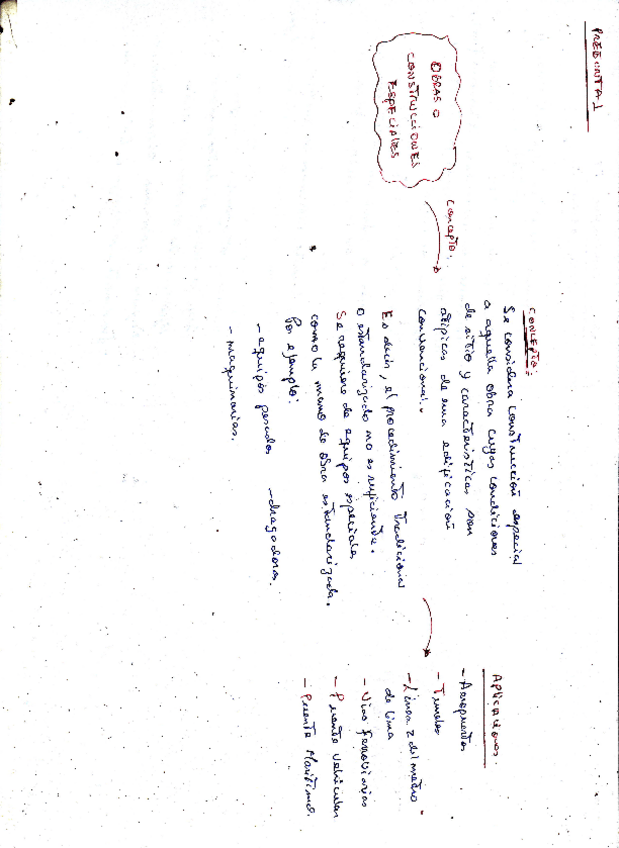 PREGUNTA 1
OBRAS O
CONSTRUCCIONES
ESPECIALES
Concepto.
CONCEPTO:
Se considera construcción especial
a aquella obra cuyas condiciones
de sitio y características son
atipicas de una edificación
convencional.
Es decir, el procedimiento tradicional
o estandarizado no es suficiente.
Se requiere de equipos especiales
como la mano de obra estandarizada.
Por ejemplo:
- equipos pesados - dragadoras.
- maquinarias.
APlicaciones.
- Aeropuertos
- Tuneles
- Linea 2 del metro
de Lima
- Vias ferroviarias
- Puente Vehicular
- Puente Marítimo.